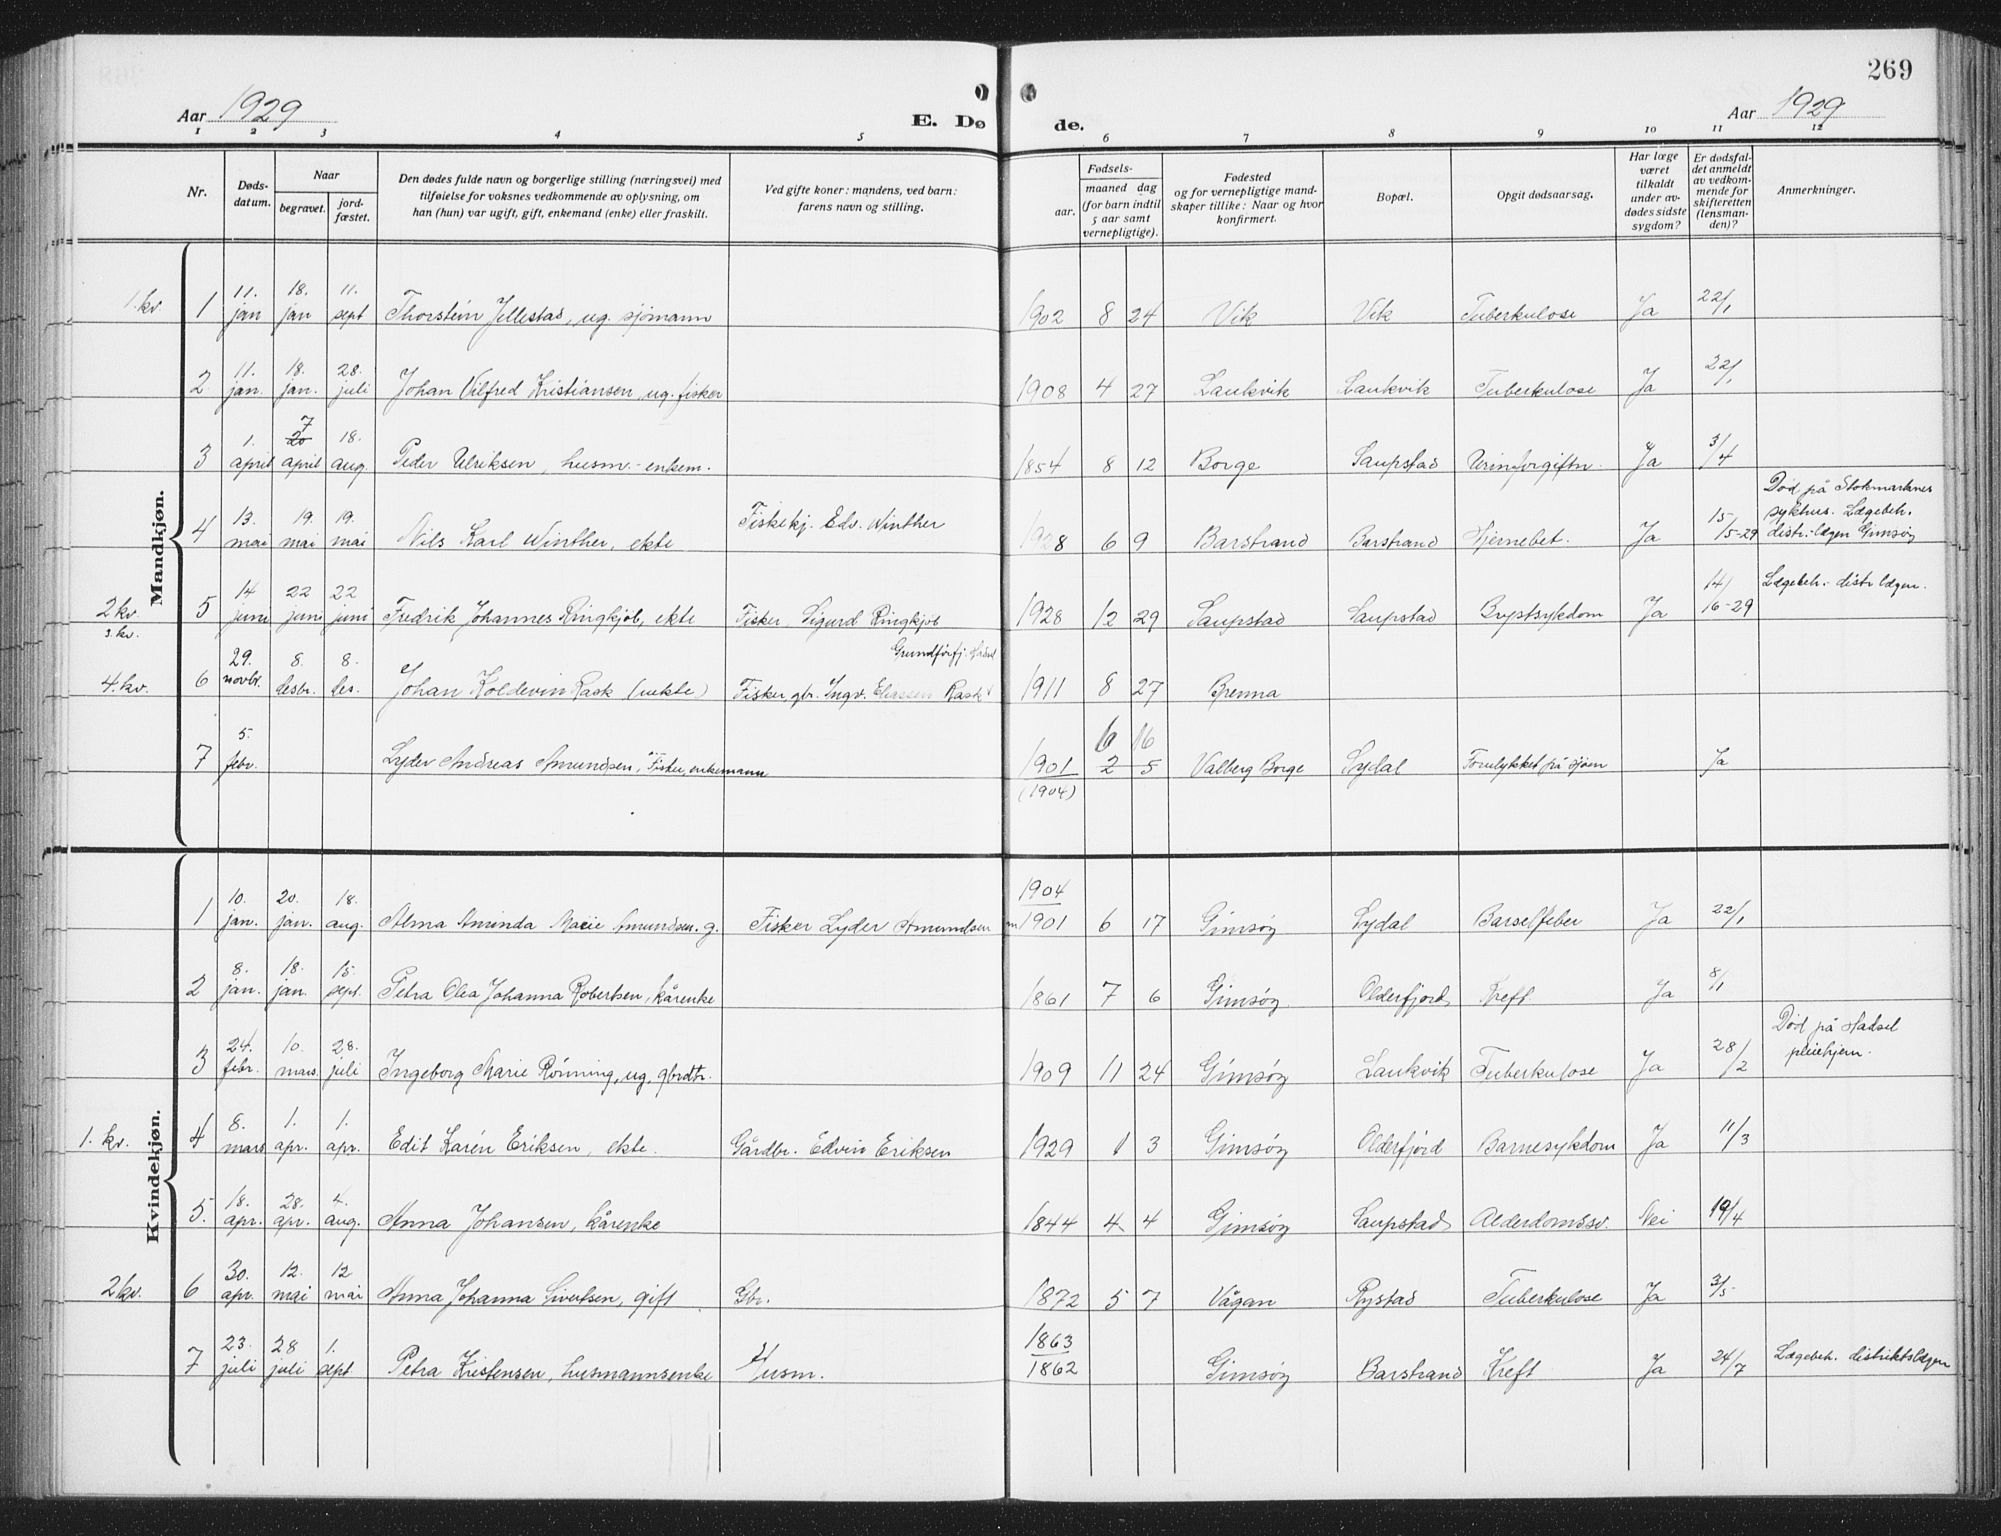 269
Aar 1929
E. Døde.
Aar 1929
1 2 3 4 5 6 7 8 9 10 11 12
Nr.
Døds-datum.
Naar
begravet.
jord-fæstet.
Den dødes fulde navn og borgerlige stilling (næringsvei) med
tilføielse for voksnes vedkommende av oplysning, om
han (hun) var ugift, gift, enkemand (enke) eller fraskilt.
Ved gifte koner: mandens, ved barn:
farens navn og stilling.
Fødsels-
aar.
maaned dag
(for barn indtil
5 aar samt
vernepligtige).
Fødested
og for vernepligtige mand-
skaper tillike: Naar og hvor
konfirmert.
Bopæl.
Opgit dødsaarsag.
Har læge
været
tilkaldt
under av-
dødes sidste
sygdom?
Er dødsfal-
det anmeldt
av vedkom-
mende for
skifteretten
(lensman-
den)?
Anmerkninger.
Mandkjøn.
1. kv. 1 11. jan 18. jan 11. sept Thorstein Jellestad, ug. sjömann 1902 8 24 Vik Vik Tuberkulose Ja 22/1
2 11. jan. 18. jan. 28. juli Johan Vilfred Kristiansen, ug. fisker 1908 4 27 Laukvik Laukvik Tuberkulose Ja 22/1
3 1. april 20 7 april 18. aug. Peder Ulriksen, husm.-enkem. 1854 8 12 Borge Saupstad Urinforgiftn. Ja 3/4
4 13. mai 19. mai 19. mai Nils Karl Winther, ekte Fiskekj. Edv. Winther 1928 6 9 Barstrand Barstrand Hjernebet. Ja 15/5-29 Död på Stokmarknes
sykhus. Lægebeh.
distr.-lægen Gimsöy
2 kv. 5 14 juni 22 juni 22 juni Fredrik Johannes Ringkjöb, ekte Fisker Sigurd Ringkjöb 1928 12 29 Saupstad Saupstad Brystsykdom Ja 14/16-29 Lægebeh.- distr lægen.
3. kv.
4. kv. 6 29. novbr. 8. desbr. 8. des. Johan Koldevin Rask (uekte) Fisker, gbr. Ingv. Eliassen Rask 1911 8 27 Brenna
7 5. febr. Lyder Andreas Amundsen, Fisker, enkemann 1901 (1904) 6 16 2 5 Valberg Borge Lydal Forulykket på sjöen Ja
Kvindekjøn.
1 10. jan. 20. jan. 18. aug. Alma Aminda Marie Amundsen. g. Fisker Lyder Amundsen 1904 1901 6 17 Gimsöy Lydal Barselfeber Ja 22/1
2 8. jan. 18. jan. 15. sept. Petra Olea Johanna Robertsen, kårenke 1861 7 6 Gimsöy Olderfjord Kreft Ja 8/1
3 24. febr. 10. mars. 28. juli Ingeborg Marie Rönning, ug, gbrdtr. 1909 11 24 Gimsöy Laukvik Tuberkulose Ja 28/2 Död på Hadsel
pleiehjem.
1. kv. 4 8. mars 1. apr. 1. apr. Edit Karén Eriksen, ekte. Gårdbr. Edvin Eriksen 1929 1 3 Gimsöy Olderfjord Barnesykdom Ja 11/3
5. 18. apr. 28. apr. 4. aug. Anna Johansen, kårenke 1844 4 4 Gimsöy Saupstad Alderdomssv. Nei 19/4
2 kv. 6 30. apr. 12. mai 12 mai Anna Johanna Sivertsen, gift Gbr. 1872 5 7 Vågan Rystad Tuberkulose Ja 3/5
7 23. juli 28 juli 1. sept. Petra Kristensen, husmannsenke Husm. 1863 1862 Gimsöy Barstrand Kreft Ja 24/7 Lægebeh. distriktslægen